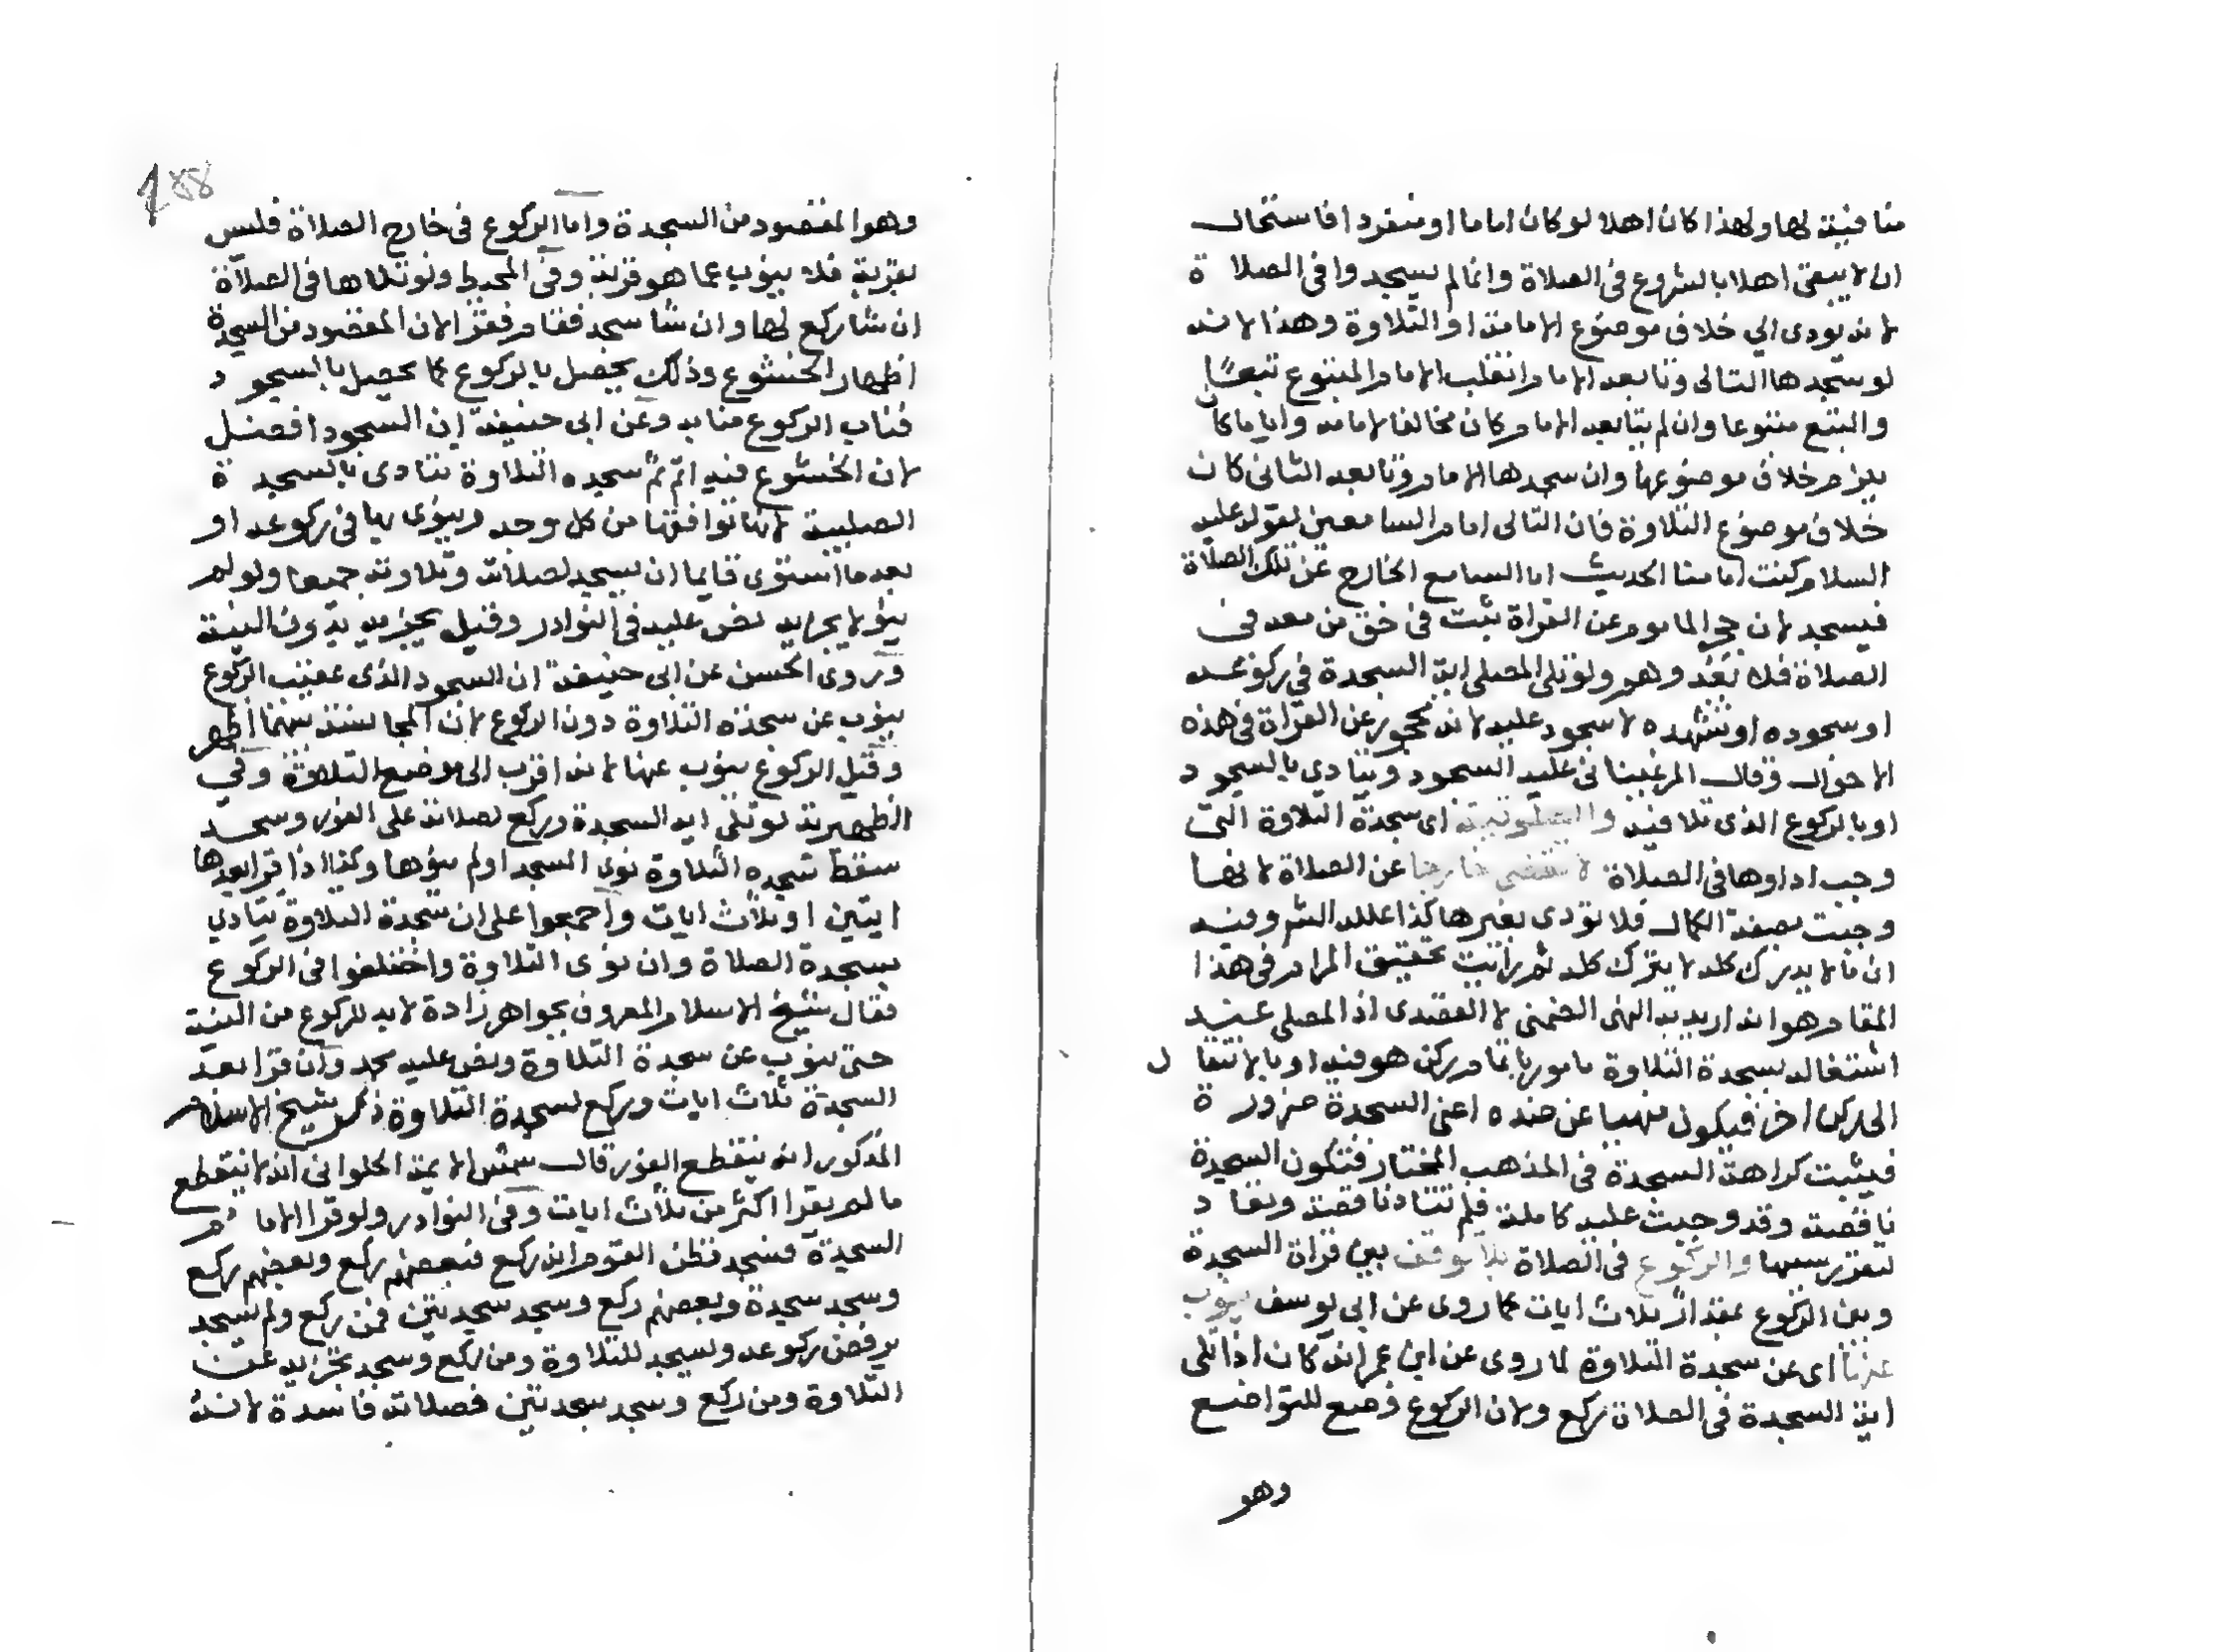 منافية لها ولهذا كان اهلا لو كان اماما او منفردا فاستحال
ان لا يبقى اهلا بالشروع فى الصلاة وانما لم يسجدوا فى الصلاة
لانه يودى الي خلاف موضوع الامامة او التلاوة وهذا لانه
لو سجدها التالى وتابعه الامام انقلب الامام المتبوع تبعًا
والتبع متبوعا وان لم يتابعه الامام كان مخالفا لامامه واياما كان
يلزم خلاف موضوعها وان سجدها الامام وتابعه التالى كان
خلاف موضوع التلاوة فان التالى امام السامعين لقوله عليه
السلام كنت امامنا الحديث اما السامع الخارج عن تلك الصلاة
فيسجد لان حجر الماموم عن القراة ثبت فى حق من معه فى
الصلاة فلا بعد وهم ولو تلى المصلى اية السجدة في ركوعه
او سجوده او تشهده لا سجود عليه لانه محجور عن القراة فى هذه
الاحوال وقال المرغينانى عليه السجود ويتادي بالسجود
او بالركوع الذى تلا فيه والصلوتية اى سجدة التلاوة التى
وجب اداوها فى الصلاة لا تقضى خارجا عن الصلاة لانها
وجبت بصفة الكمال فلا تودى بغيرها كذا علله الشم وفيه
ان ما لا يدرك كله لا يترك كله ثم رايت تحقيق المرام فى هذا
المقام وهو انه اريد به النهى الضمنى لا القصدى اذ المصلى عند
اشتغاله بسجدة التلاوة مامور باتمام ركن هو فيه او بالانتقال
الى ركن اخر فيكون منهيا عن ضده اعنى السجدة ضرورة
فيثبت كراهة السجدة فى المذهب المختار فتكون السجدة
ناقصة وقد وجبت عليه كاملة فلم تتاد ناقصة وتعاد
لتقرر سببها والركوع فى الصلاة بلا توقف بين قراة السجدة
وبين الركوع بمقدار ثلاث ايات كما روى عن ابى يوسف ينوب
عنها اى عن سجدة التلاوة لما روى عن ابن عمر انه كان اذا تلى
اية السجدة فى الصلاة ركع ولان الركوع وضع للتواضع
وهو
188
وهو المقصود من السجدة واما الركوع فى خارج الصلاة فليس
بقربة فلا ينوب عما هو قربة وفى المحيط ولو تلاها فى الصلاة
ان شا ركع لها وان شا سجد فقام فقرا لان المقصود من السجدة
اظهار الخشوع وذلك يحصل بالركوع كما يحصل بالسجود
فناب الركوع منابه وعن ابى حنيفة ان السجود افضل
لان الخشوع فيه اتم ثم سجده التلاوة تتادى بالسجدة
الصلبية لانها توافقها من كل وجه وينوى بها فى ركوعه او
بعد ما استوى قايما ان يسجد لصلاته وتلاوته جميعا ولو لم
ينو لا يجزيه نص عليه فى النوادر وقيل يجزيه بدون النية
وروى الحسن عن ابى حنيفة ان السجود الذى عقيب الركوع
ينوب عن سجدة التلاوة دون الركوع لان المجانسة بينهما اظهر
وقيل الركوع ينوب عنها لانه اقرب الى موضع التلاوة وفي
الظهيرية لو تلى اية السجدة وركع لصلاته على الفور وسجد
سقط سجده التلاوة نوى السجد او لم ينوها وكذا اذا قرا بعدها
ايتين او ثلاث ايات واجمعوا على ان سجدة التلاوة تتادي
بسجدة الصلاة وان نوى التلاوة واختلفوا فى الركوع
فقال شيخ الاسلام المعروف بخواهر زادة لابد للركوع من النية
حتى ينوب عن سجدة التلاوة ونص عليه محمد وان قرا بعد
السجدة ثلاث ايات وركع لسجدة التلاوة ذكر شيخ الاسلام
المذكور انه ينقطع الفور قال شمس الايمة الحلوانى انه لا ينقطع
ما لم يقرا اكثر من ثلاث ايات وفى النوادر ولو قرا الامام
السجدة فسجد فظن القوم انه ركع فبعضهم ركع وبعضهم ركع
وسجد سجدة وبعضهم ركع وسجد سجدتين فمن ركع ولم يسجد
يرفض ركوعه ويسجد للتلاوة ومن ركع وسجد تجزيه عن
التلاوة ومن ركع وسجد سجدتين فصلاته فاسدة لانه